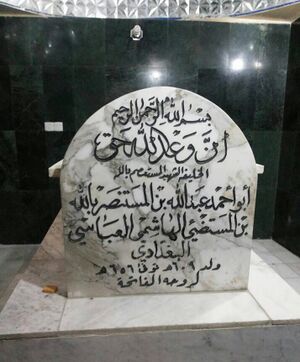 بسم الله الرحمن الرحيم
إن وعد الله حق
الخليفة الشهيد المستعصم بالله
أبو احمد عبد الله بن المستنصر بالله
بن المستضئ الهاشمي العباسي
البغدادي
ولد ٦٠٩هـ توفي ٦٥٦هـ
لروحه الفاتحة